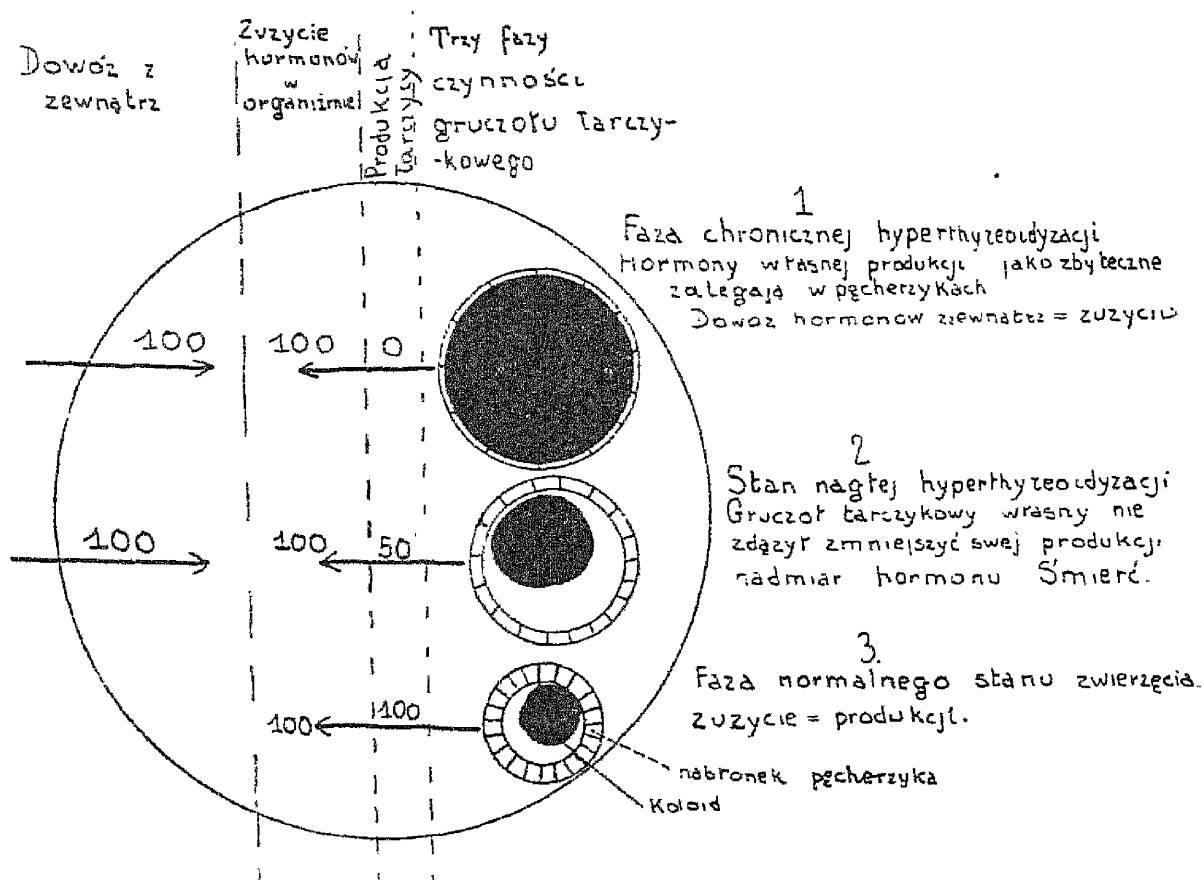 Dowóz z
zewnątrz
Zużycie
hormonów
w
organiźmie
Produkcja
tarczycy
Trzy fazy
czynności
gruczołu tarczy-
-kowego
1
Faza chronicznej hyperthyreoidyzacji
Hormony własnej produkcji jako zbyteczne
zalegają w pęcherzykach
Dowóz hormonów zzewnątrz = zużyciu
100
100
0
2
Stan nagłej hyperthyreoidyzacji
Gruczoł tarczykowy własny nie
zdążył zmniejszyć swej produkcji
nadmiar hormonu Śmierć.
100
100
50
3.
Faza normalnego stanu zwierzęcia.
zużycie = produkcji.
100
100
nabłonek pęcherzyka
Koloid